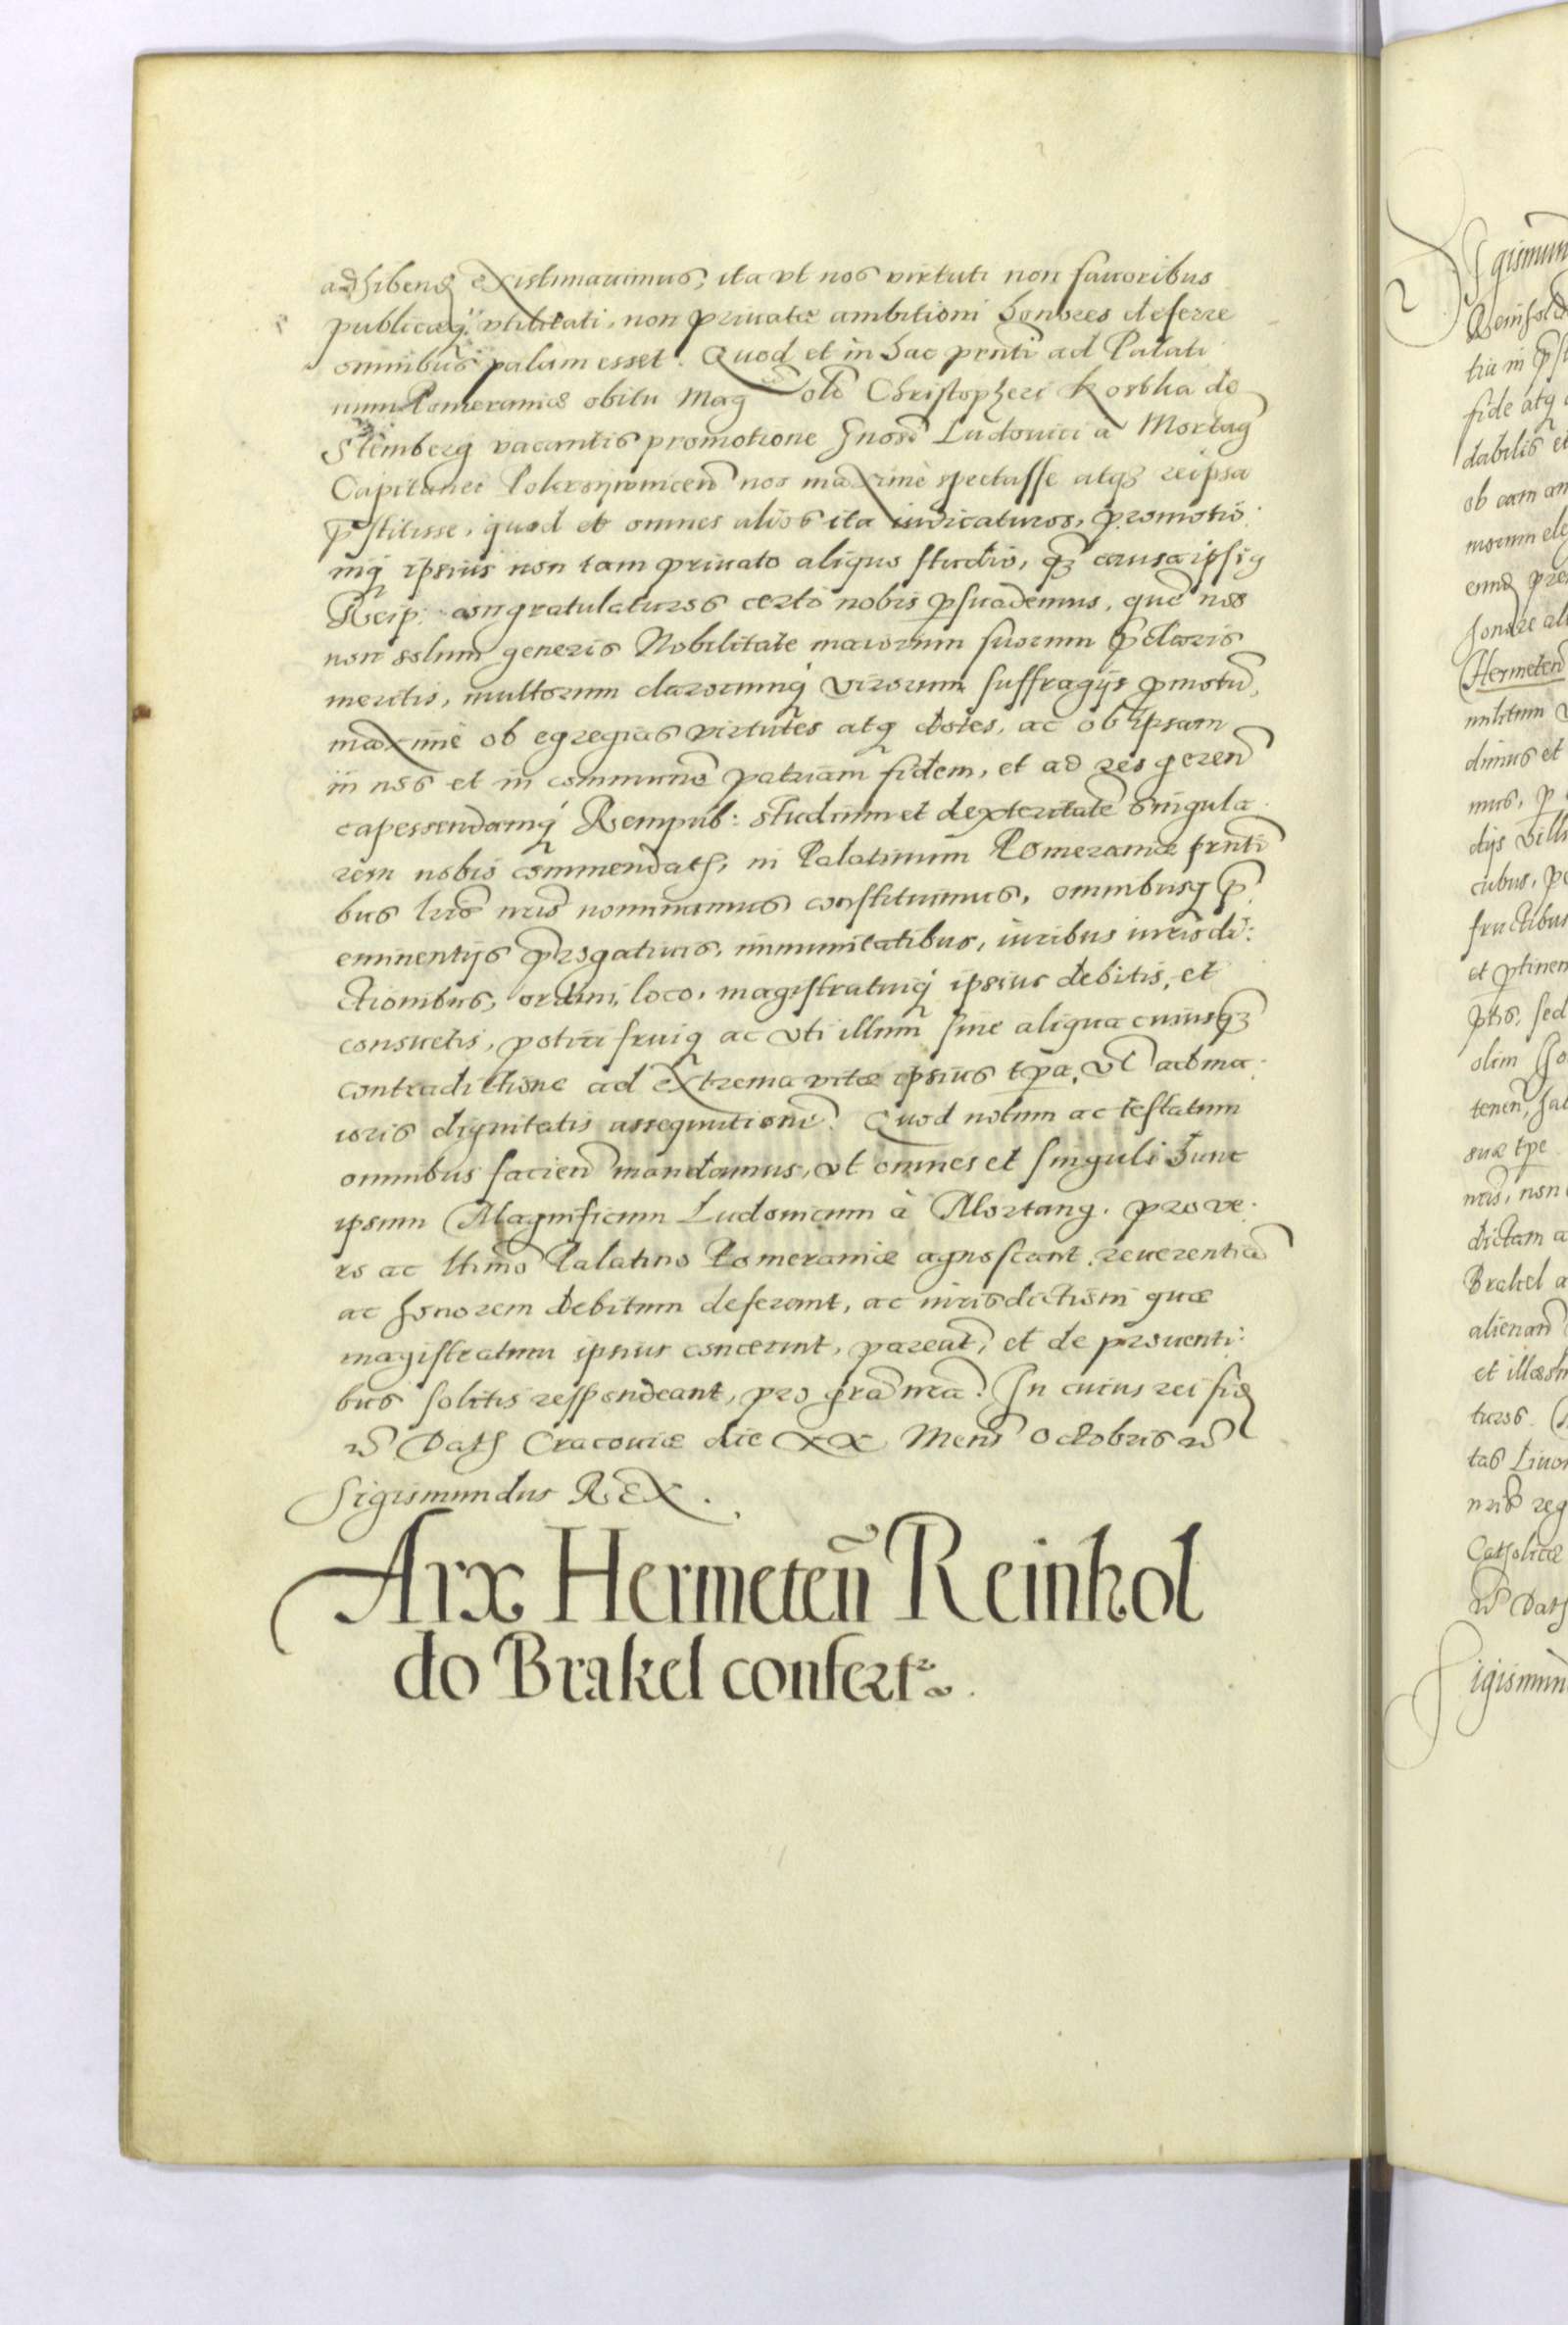 adhibend existimauimus, ita vt nos virtuti non fauoribus
publicaeq vtilitati, non priuatae ambitioni honores deferre
omnibus palam esset. Quod et in hac prnti ad Palati
num Pomeraniae obitu Mag olim Christopheri Kostka de
Stemberg vacantis promotione Gnosi Ludouici a Mortag
Capitanei Pokrsywnicen nos maxime spectasse atq reipsa
pstitisse, quod et omnes alios ita iudicaturos, promotio
niq ipsius non tam priuato aliquo studio, q causa ipsiq
Reip: congratulaturos certo nobis psuademus, que nos
non solum generis Nobilitate maiorum suorum pclaris
meritis, multorum clarorumq virorum suffragijs pmotu,
maxime ob egregias virtutes atq dotes, ac ob ipsam
in nos et in commune patriam fidem, et ad res geren
capessendamq Rempub: studium et dexteritate singula
rem nobis commendatu, in Palatinum Pomeraniae prnti
bus lris nris nominamus constituimus, omnibusq p
eminentijs progatiuis, immunitatibus, iuribus iurisdi:
ctionibus, ordini, loco, magistratuiq ipsius debitis, et
consuetis, potiri fruiq ac vti illum sine aliqua cuiusq
contradictione ad extrema vitae ipsius tpa, vl ad ma
ioris dignitatis assequutione. Quod notum ac testatum
omnibus facien mandamus, vt omnes et singuli hunc
ipsum Magnificum Ludouicum à Mortang. pro ve.
ro ac ltimo Palatino Pomeraniae agnoscant, reuerentia
ac honorem debitum deferant, ac iurisdictioni quae
magistratum ipsius concernt, pareat, et de prouenti:
bus solitis respondeant, pro gra nra. In cuius rei fid
Dat Cracouiae die XX Mens Octobris
Sigismundus REX.
Arx Hermeteñ Reinhol
do Brakel confert.